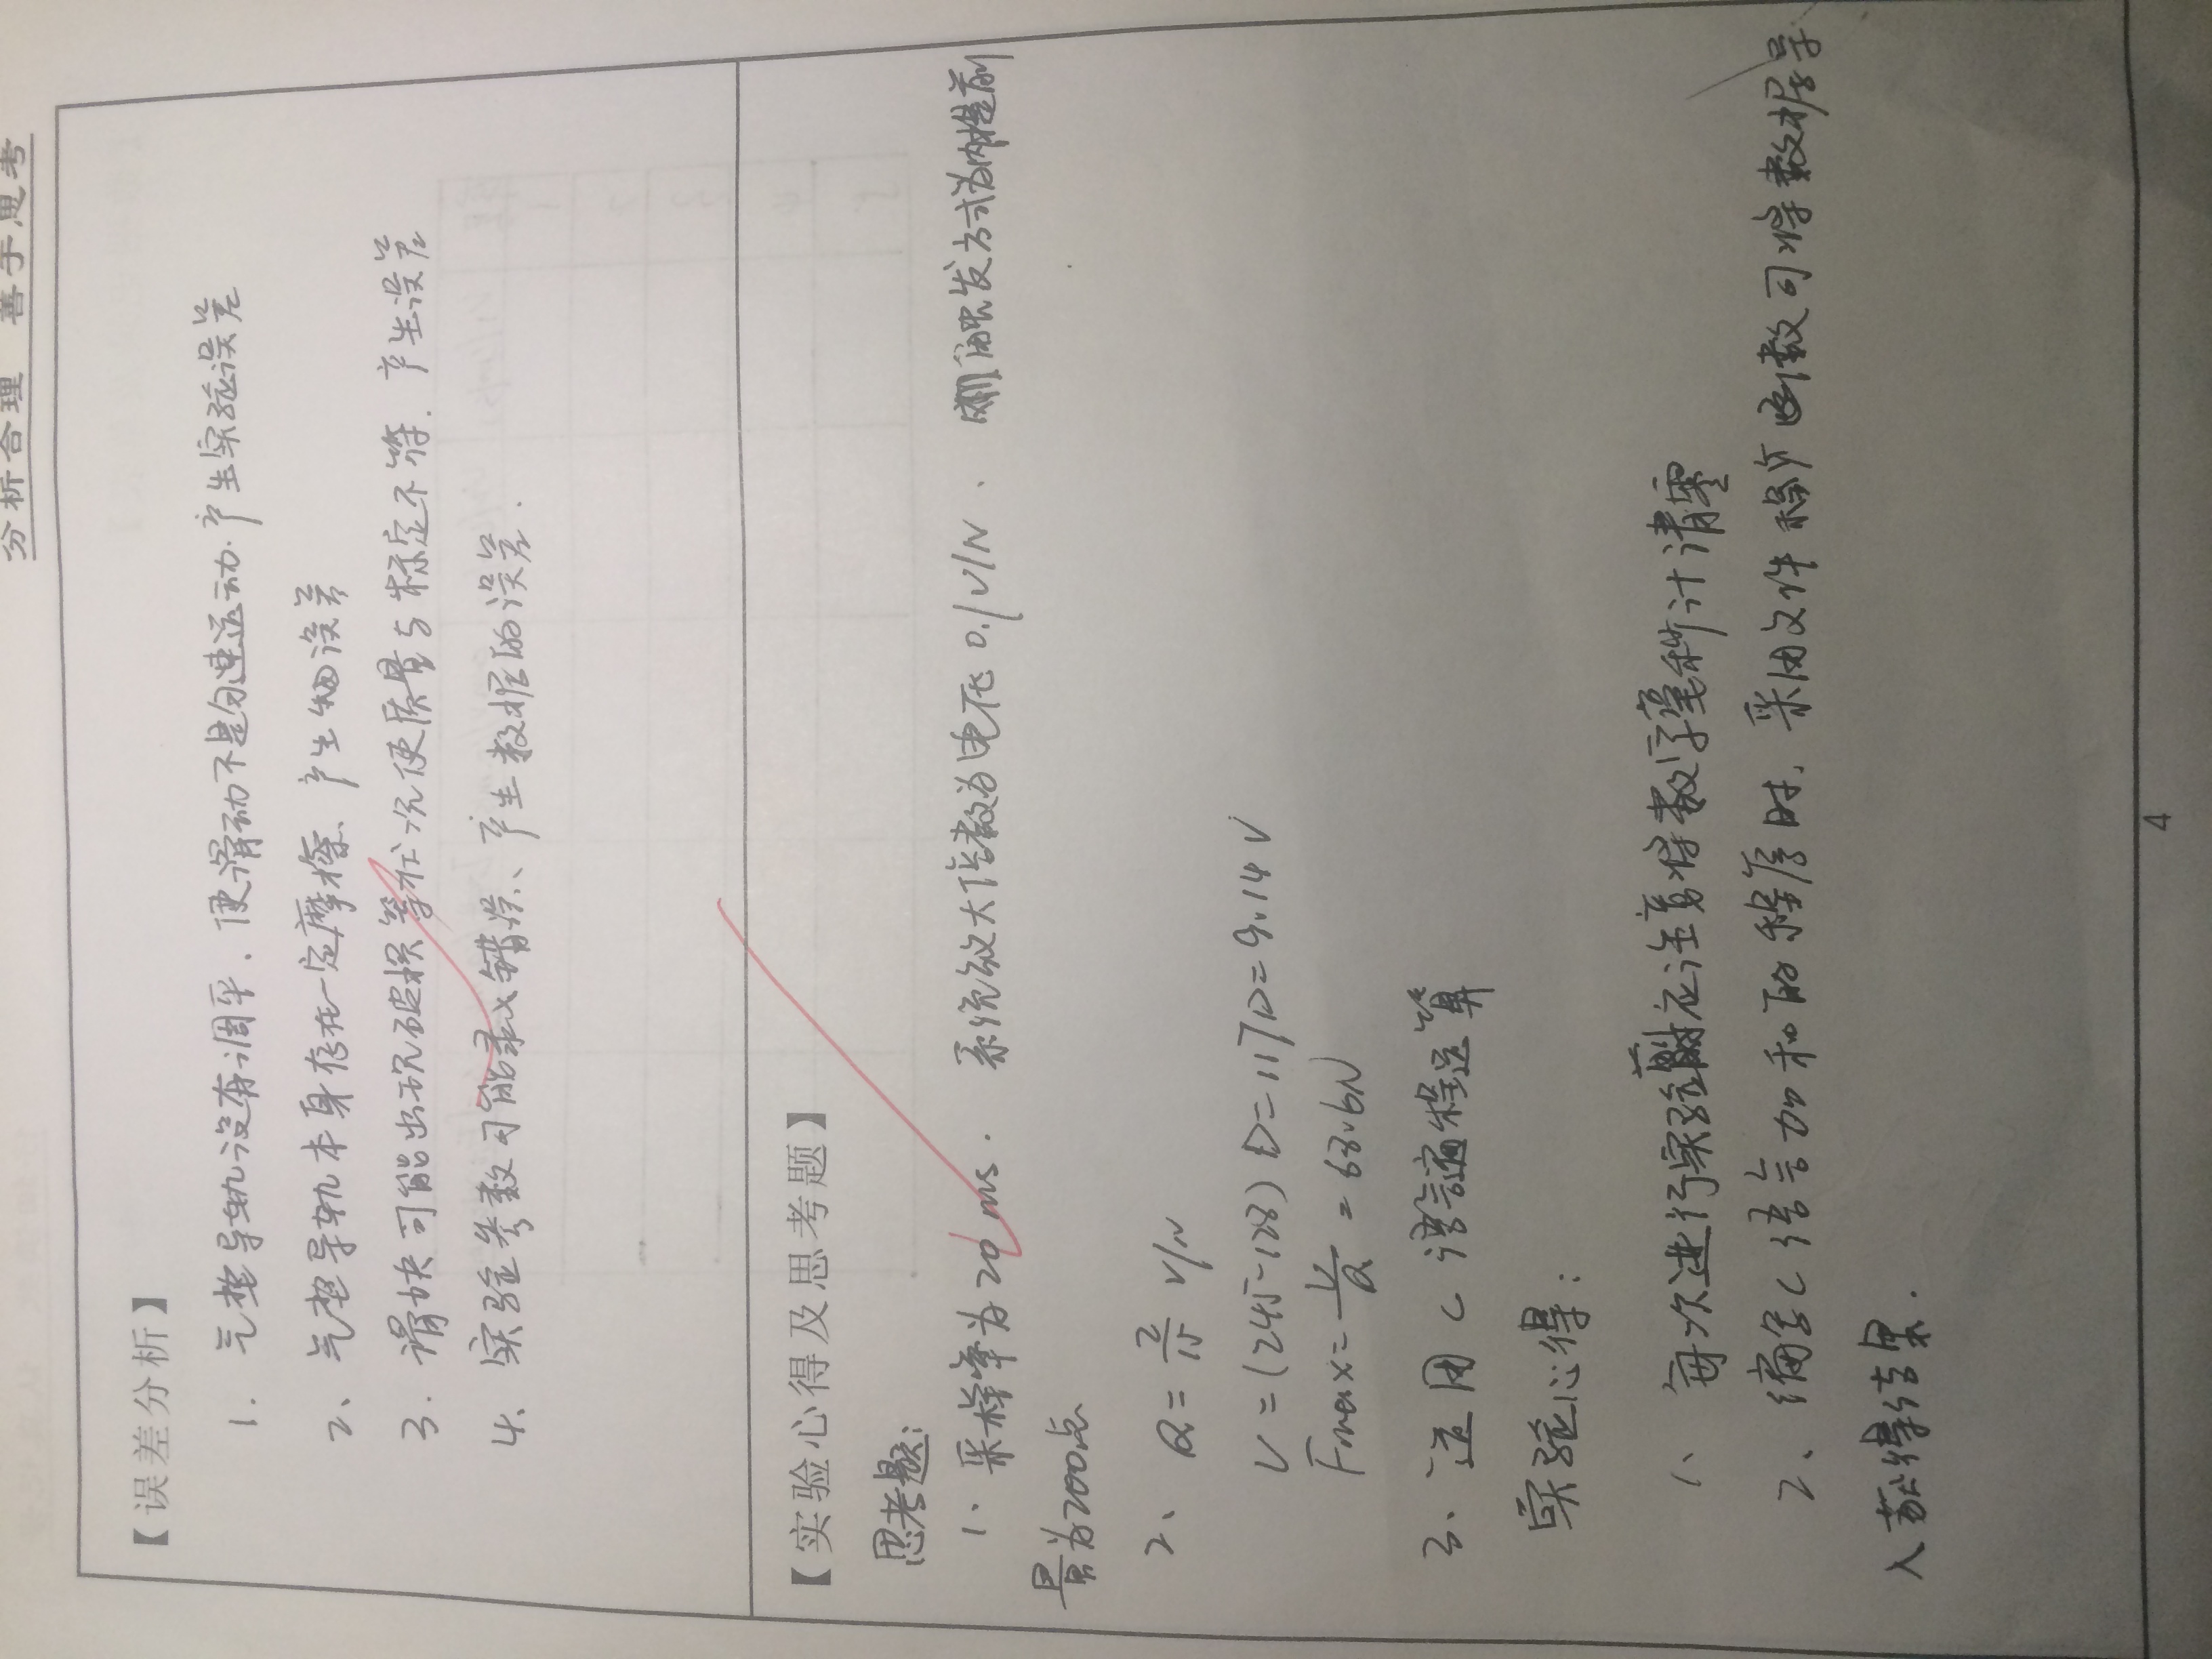 分析合理 善于思考
【误差分析】
1. 气垫导轨没有调平．使滑动不是匀速运动．产生实验误差
2、气垫导轨本身存在一定摩擦、产生误差
3. 滑块可能出现破损等状况使质量与标定不符．产生误差
4、实验参数可能录入错误、产生数据的误差．
【实验心得及思考题】
思考题：
1、采样率为20ms． 系统放大倍数为电压0.1V/N、 触发方式为内提前
量为200点
2、 Q=2/15 V/N
V=(245-128)D=117D=9.14V
Fmax=V/Q=68.6N
3、运用C语言编程运算
实验心得：
1、每次进行实验前应注意将数字毫秒计清零
2、编写C语言加和的程序时，采用文件函数可将数据导
入获得结果．
4